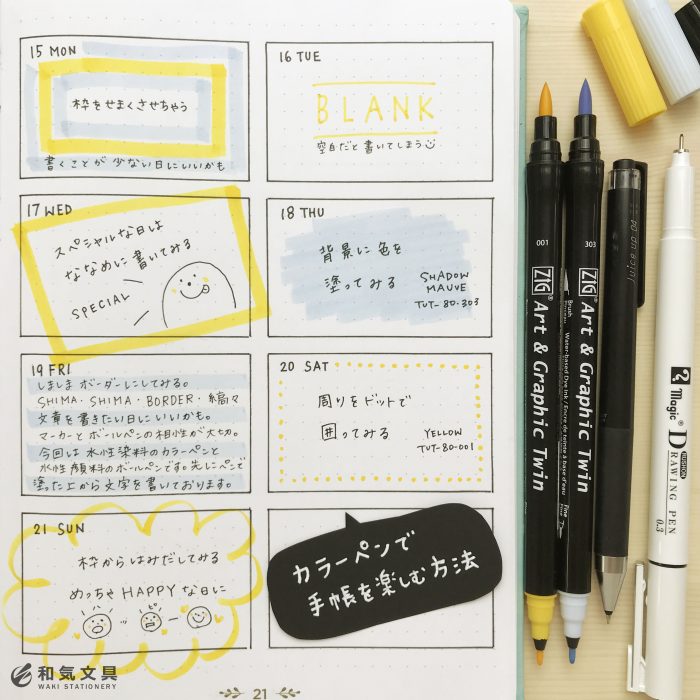 15 MON
枠をせまくさせちゃう
書くことが少ない日にいいかも
16 TUE
BLANK
空白だと書いてしまう
17 WED
スペシャルな日は
ななめに書いてみる
SPECIAL
18 THU
背景に色を
塗ってみる
SHADOW
MAUVE
TUT-80-303
19 FRI
しましまボーダーにしてみる。
SHIMA・SHIMA・BORDER・縞々
文章を書きたい日にいいかも。
マーカーとボールペンの相性が大切。
今回は水性染料のカラーペンと
水性顔料のボールペンです。先にペンで
塗った上から文字を書いております。
20 SAT
周りをドットで
囲ってみる
YELLOW
TUT-80-001
21 SUN
枠からはみだしてみる
めっちゃHAPPYな日に
ハ ッ ピ ー
カラーペンで
手帳を楽しむ方法
21
和気文具
WAKI STATIONERY
001
ZIG® Art & Graphic Twin
Brush
Fine
303
ZIG® Art & Graphic Twin
Brush
Water-based Dye Ink / Encre de teinture à base d'eau
Fine
Juice up 04
Magic®
CUSHION
DRAWING PEN
0.3